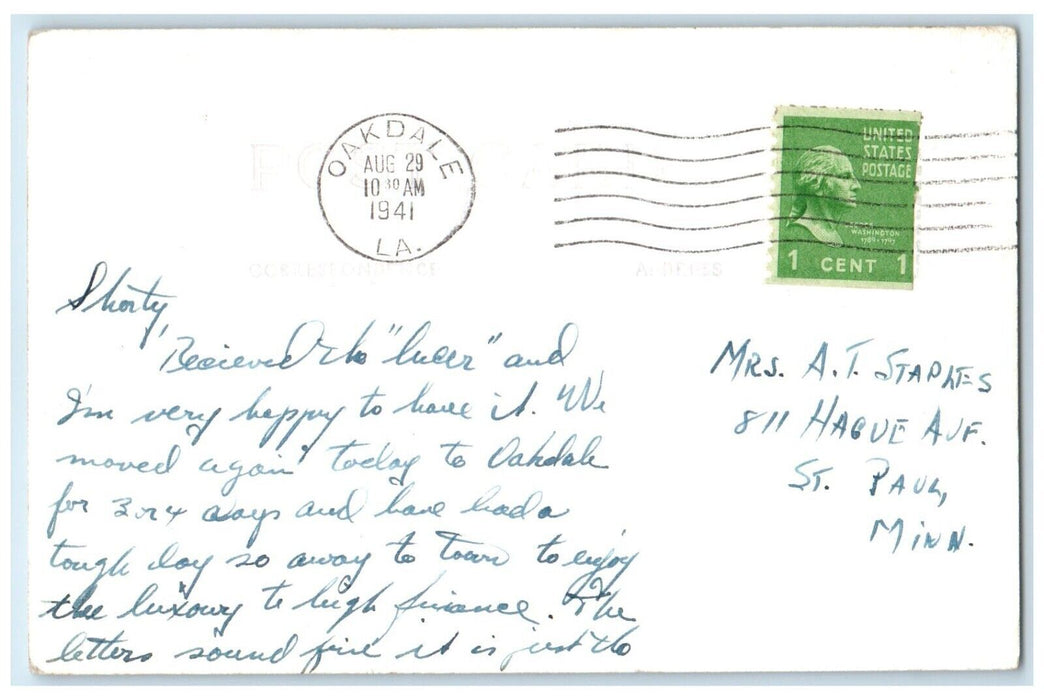 OAKDALE
AUG 29
10 30 AM
1941
LA.
UNITED
STATES
POSTAGE
GEORGE
WASHINGTON
1789-1797
1 CENT 1
POST CARD
CORRESPONDENCE
ADDRESS
Shorty,
Recieved the " " and
I'm very happy to have it. We
moved again today to Oakdale
for 3 or 4 days and have had a
tough day so away to town to enjoy
the luxury to high finance. The
letters sound fine it is just the
MRS. A.T. STAPLES
811 HAGUE AVE.
ST. PAUL,
MINN.